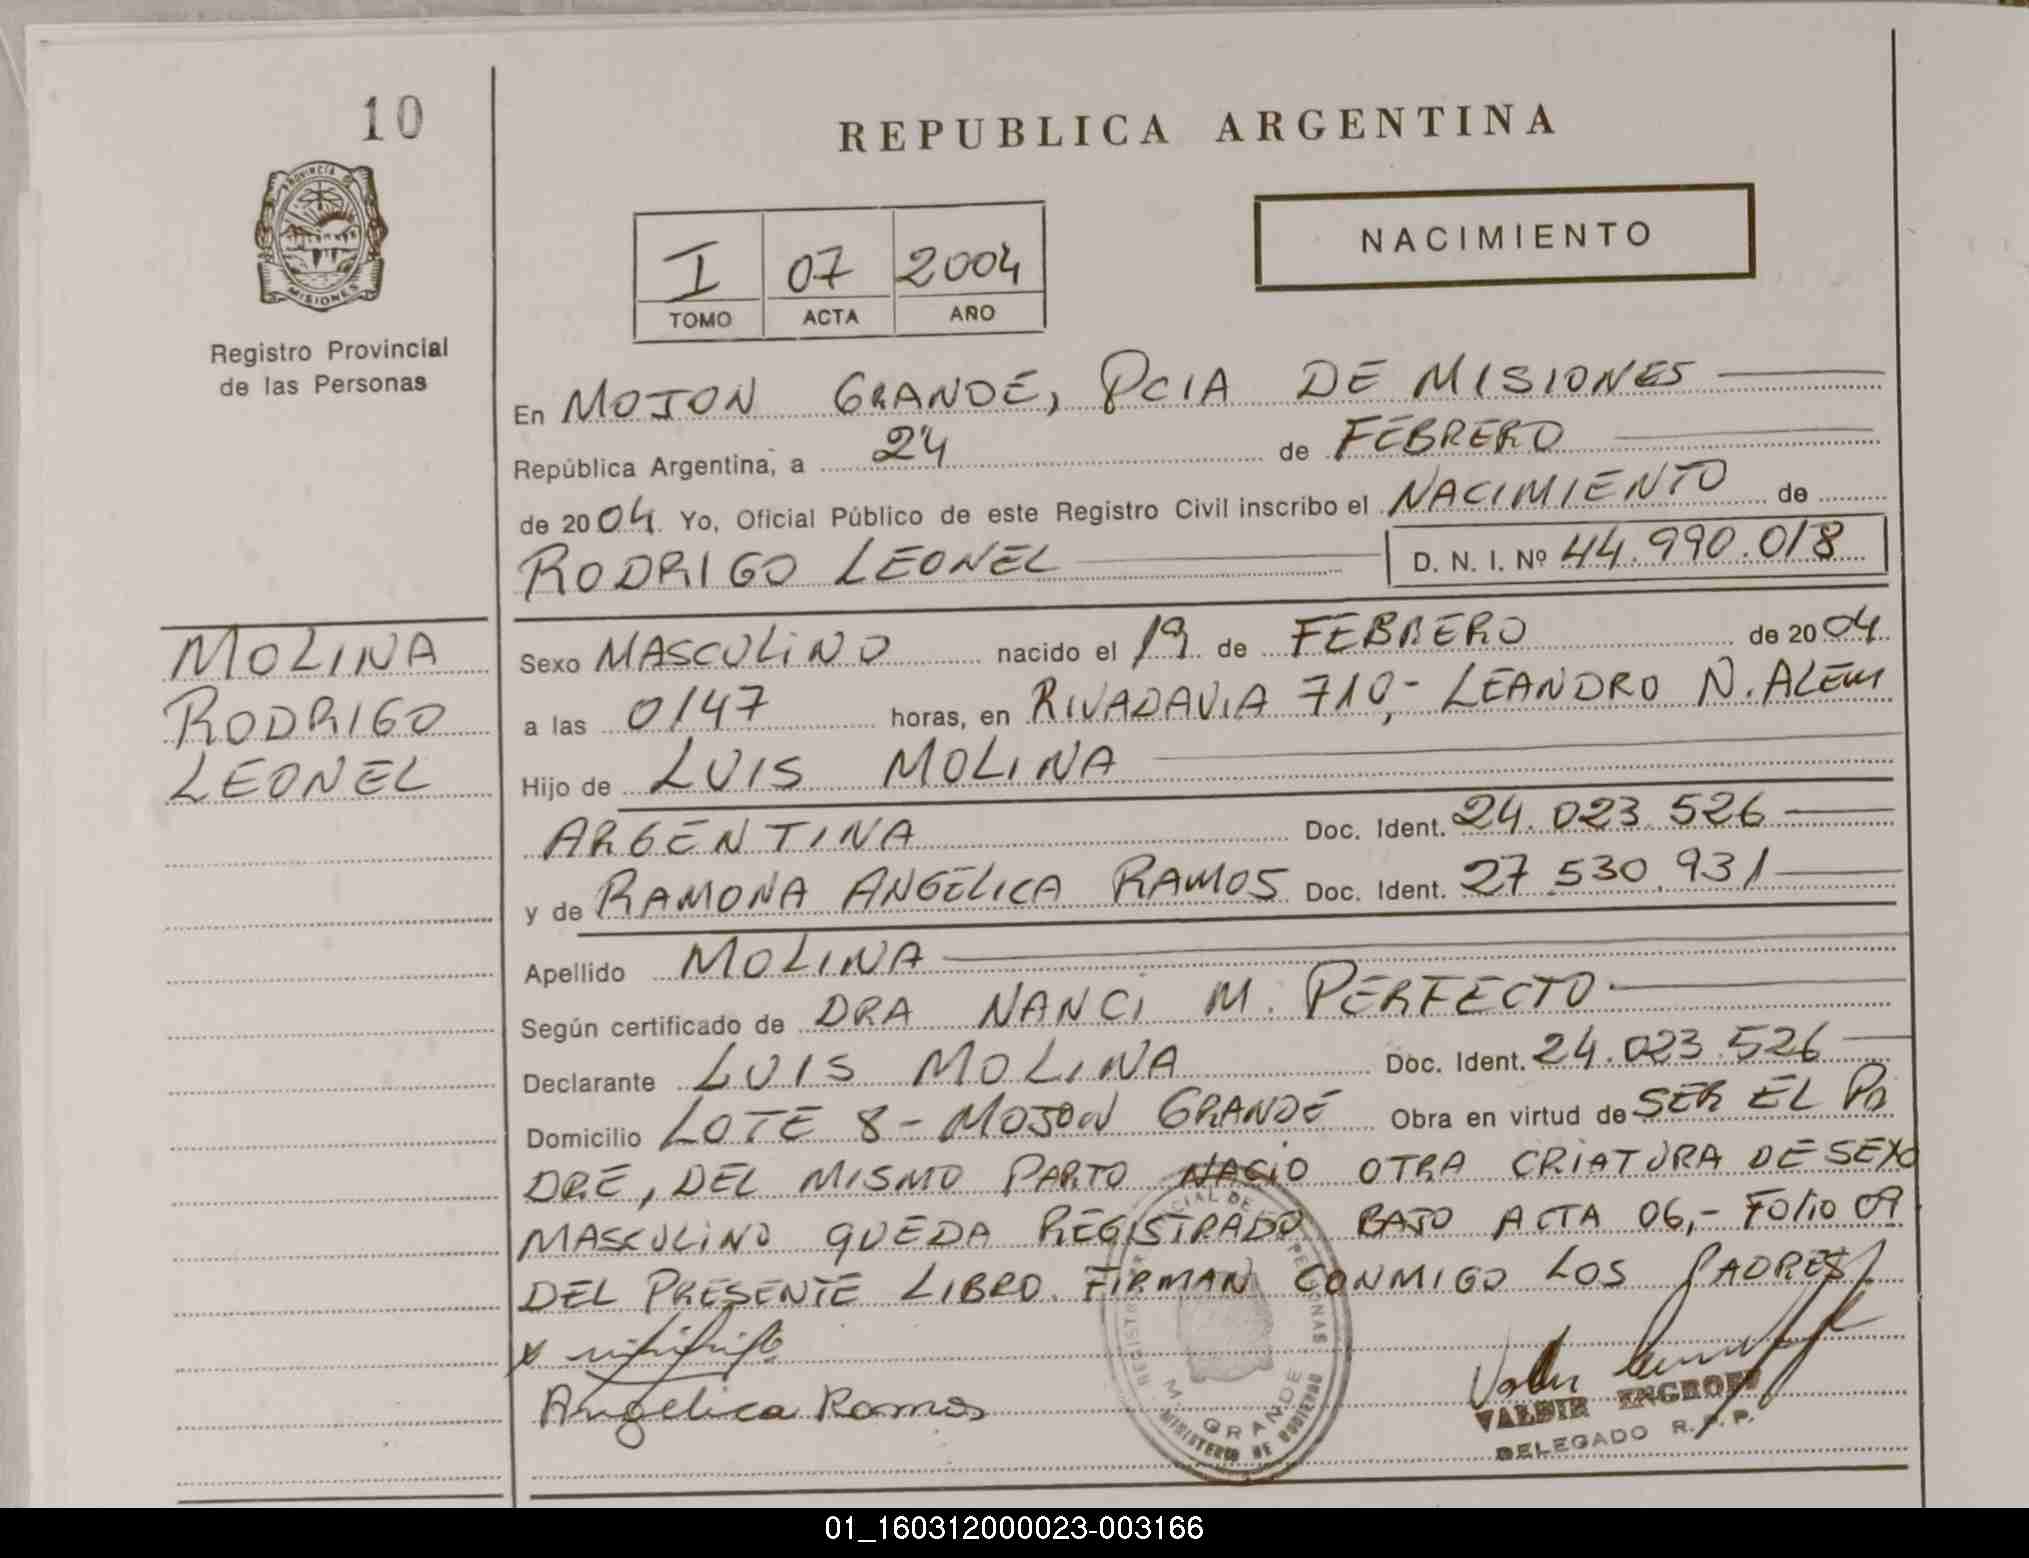 10
REPUBLICA ARGENTINA
PROVINCIA DE
MISIONES
NACIMIENTO
I 07 2004
TOMO ACTA AÑO
Registro Provincial
de las Personas
En MOJON GRANDE, PCIA DE MISIONES
República Argentina, a 24 de FEBRERO
de 2004 Yo, Oficial Público de este Registro Civil inscribo el NACIMIENTO de
RODRIGO LEONEL D. N. I. Nº 44.990.018
MOLINA
RODRIGO
LEONEL
Sexo MASCULINO nacido el 19 de FEBRERO de 2004
a las 0147 horas, en RIVADAVIA 710,- LEANDRO N. ALEM
Hijo de LUIS MOLINA
ARGENTINA Doc. Ident. 24.023.526
y de RAMONA ANGELICA RAMOS Doc. Ident. 27.530.931
Apellido MOLINA
Según certificado de DRA NANCI M. PERFECTO
Declarante LUIS MOLINA Doc. Ident. 24.023.526
Domicilio LOTE 8 - MOJON GRANDE Obra en virtud de SER EL PA
DRE, DEL MISMO PARTO NACIO OTRA CRIATURA DE SEXO
MASCULINO QUEDA REGISTRADO BAJO ACTA 06,- FOLIO 09
DEL PRESENTE LIBRO. FIRMAN CONMIGO LOS PADRES
Angelica Ramos
M. GRANDE
MINISTERIO DE GOBIERNO
VALDIR
DELEGADO R.P.P.
01_160312000023-003166